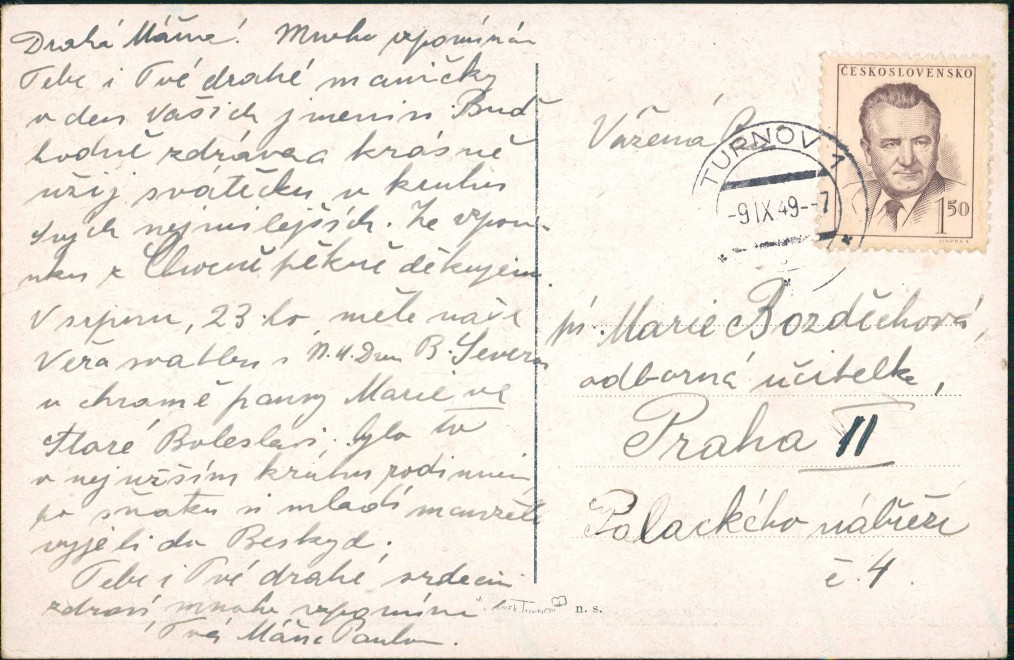 Drahá Máňo! Mnoho vzpomínám
Tebe i Tvé drahé maničky
v den Vašich jmenin Buď
hodně zdráva a krásně
užij svátečku v kruhu
svých nejmilejších. Za vzpomínku
z Chocně pěkně děkujem.
V srpnu, 23. ho, měla naše
Věra svatbu s B. Severou
v chrámě panny Marie ve
Staré Boleslavi. bylo to
v nejužším kruhu rodinném
po sňatku si mladí manželé
vyjeli do Beskyd.
Tebe i Tvé drahé, srdečně
zdraví, mnoho vzpomíná
Tvá Máňa
ČESKOSLOVENSKO
1 50
TURNOV 1
-9 IX 49--7
Vážená
Marie Bozděchová,
odborná učitelka,
Praha II
Palackého nábřeží
č. 4.
n. s.